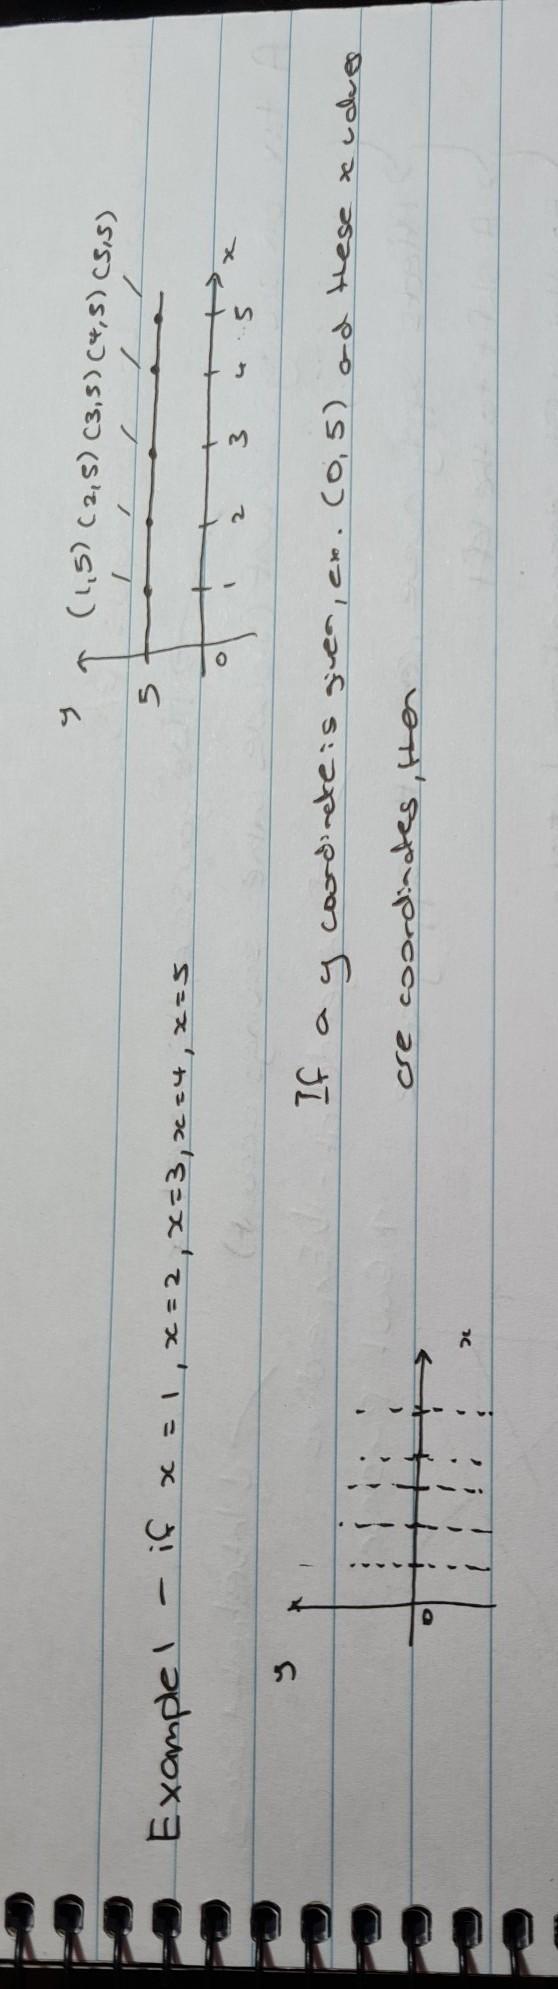 Example 1 - if x = 1, x = 2, x = 3, x = 4, x = 5
y
0
x
y
(1,5) (2,5) (3,5) (4,5) (5,5)
5
0 1 2 3 4 5 x
If a y coordinate is given, ex. (0,5) and these x values
are coordinates, then